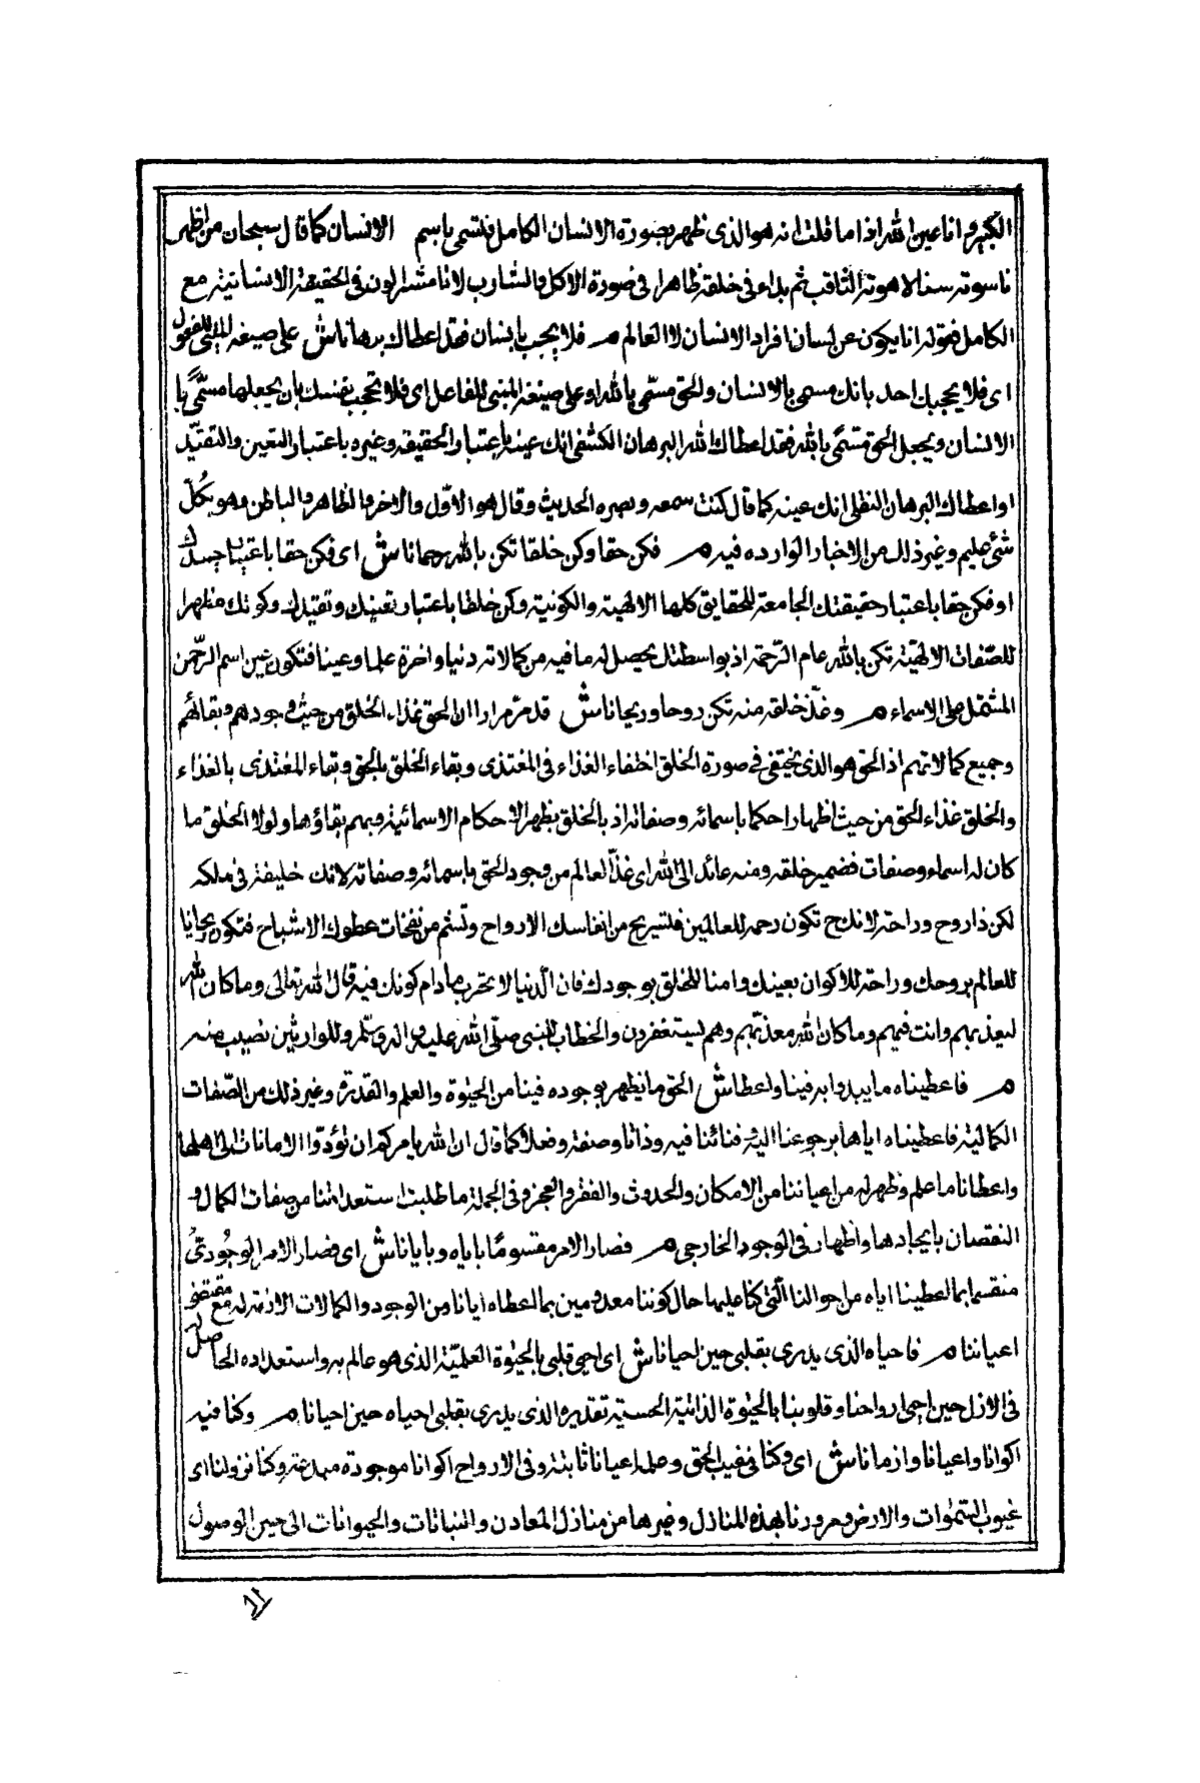 الكبير وانا عين الله اذا ما قلت انه هو الذى ظهر بصورة الانسان الكامل فتسمى باسم الانسان كما قال سبحان من اظهر
ناسوته سنا لاهوته الثاقب ثم بدا فى خلقه ظاهرا فى صورة الاكل والشارب لانا مشاركون فى الحقيقة الانسانية مع
الكامل فقوله انا يكون عن لسان افراد الانسان لا العالم م فلا يحجب بانسان فقد اعطاك برهانا ش على صيغة المبنى للمفعول
اى فلا يحجبك احد بانك مسمى بالانسان والحق مسمّى بالله او على صيغة المبنى للفاعل اى فلا تحجب نفسك بان يجعلها مسمّىً با
الانسان ويجعل الحق مسمّى بالله فقد اعطاك الله البرهان الكشفى انك عينه باعتبار الحقيقة وغيره باعتبار التعين والتقيّد
او اعطاك البرهان النقلى انك عينه كما قال كنت سمعه وبصره الحديث وقال هو الاوّل والاخر والظاهر والباطن وهو بكُلّ
شئ عليم وغير ذلك من الاخبار الوارده فيه م فكن حقا وكن خلقا تكن بالله رحمانا ش اى فكن حقا باعتبار جسدك
او فكن حقا باعتبار حقيقتك الجامعة للحقايق كلها الالهية والكونية وكن خلقا باعتبار تعينك وتقيدك وكونك مظهرا
للصّفات الالهيّة تكن بالله عام الرّحمة اذ بواسطتك يحصل له ما فيه من كمالاته دنيا واخرة علما وعينا فتكون عين اسم الرّحمن
المشتمل على الاسماء م وغذّ خلقه منه تكن روحا وريحانا ش قد مرّ مرارا ان الحق غذاء الخلق من حيث وجودهم وبقائهم
وجميع كمالاتهم اذ الحق هو الذى يختفى فى صورة الخلق اختفاء الغذاء فى المغتذى وبقاء الخلق بالحق وبقاء المغتذى بالغذاء
والخلق غذاء الحق من حيث اظهار احكام باسمائه وصفاته اذ بالخلق يظهر الاحكام الاسمائية وبهم بقاؤها ولولا الخلق ما
كان له اسماء وصفات فضمير خلقه ومنه عائد الى الله اى غذّ العالم من وجود الحق باسمائه وصفاته لانك خليفة فى ملكه
لكن ذا روح وراحة لانك ح تكون رحمه للعالمين فتستريح من انفاسك الارواح وتشم من نفحات عطرك الاشباح فتكون ريحانا
للعالم بروحك وراحة للاكوان بعينك وامنا للخلق بوجودك فان الدنيا لا تخرب مادام كونك فيه قال الله تعالى وما كان الله
ليعذبهم وانت فيهم وما كان الله معذبّهم وهم يستغفرون والخطاب للنبى صلّى الله عليه واله وسلّم وللوارثين نصيب منه
م فاعطيناه ما يبدو ابه فينا واعطا ش الحق ما يظهر بوجوده فينا من الحيٰوة والعلم والقدرة وغير ذلك من الصّفات
الكمالية فاعطيناه اياها برجوعنا اليه وفنائنا فيه وذاتا وصفة وفعلا كما قال ان الله يامركم ان تؤدّوا الامانات الى اهلها
واعطانا ما علم وظهر له من اعياننا من الامكان والحدوث والفقر والعجز وفى الجملة ما طلبت استعداتنا من صفات الكمال و
النقصان بايجادها واظهار فى الوجود الخارجى م فصار الامر مقسومًا باياه وبايانا ش اى فصار الامر الوجُودىُّ
منقسما بما اعطينا اياه من احوالنا الّتى كنا عليها حال كوننا معدومين بما اعطاه ايانا من الوجود والكمالات الازمة له مع مقتضى
اعياننا م فاحياه الذى يدرى بقلبى حين احيانا ش اى احى قلبى بالحيٰوة العلميّة الذى هو عالم به واستعداده الحاصل له
فى الازل حين احى ارواحنا وقلوبنا بالحيٰوة الذاتية الحسيّة تقديره الذى يدرى بقلبى احياه حين احيانا م وكنا فيه
اكوانا واعيانا وازمانا ش اى وكنا فى غيب الحق وعلمه اعيانا ثابتة وفى الارواح اكوانا موجودة مبدعة وكنا نزولنا اى
غيوب السّمٰوات والارض ومرورنا بهذه المنازل وغيرها من منازل المعادن والنباتات والحيوانات الى حين الوصول